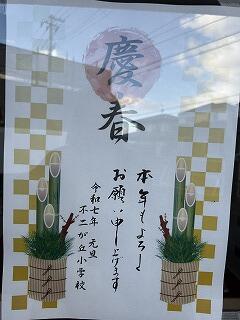 慶春
本年もよろしく
お願い申し上げます
令和七年 元旦
不二が丘小学校